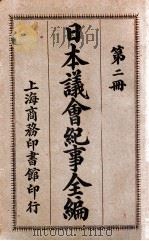 第二冊
日本議會紀事全編
上海商務印書館印行